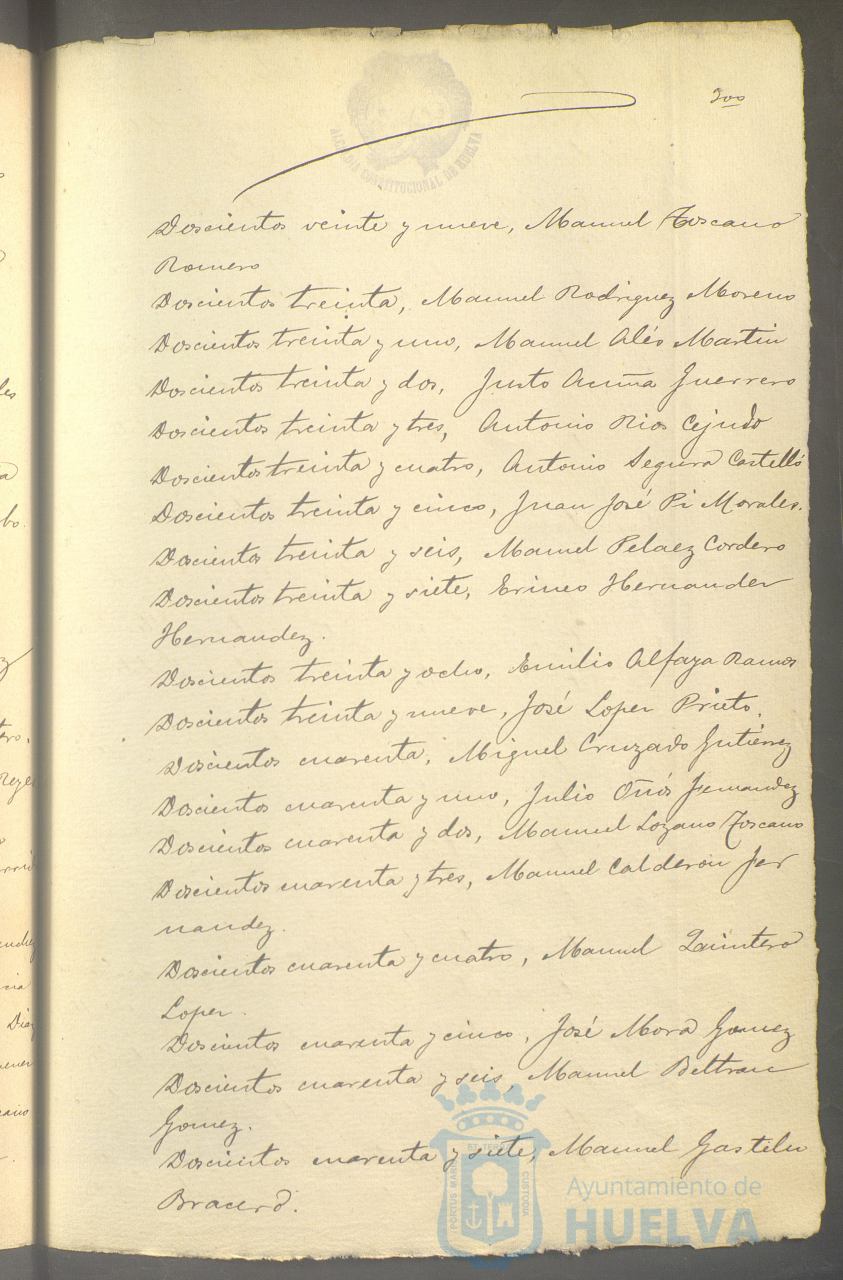 ALCALDIA CONSTITUCIONAL DE HUELVA
Doscientos veinte y nueve, Manuel Toscano
Romero
Doscientos treinta, Manuel Rodriguez Moreno
Doscientos treinta y uno, Manuel Alés Martin
Doscientos treinta y dos, Justo Acuña Guerrero
Doscientos treinta y tres, Antonio Rios Cejudo
Doscientos treinta y cuatro, Antonio Segura Castelló
Doscientos treinta y cinco, Juan José Pi Morales.
Doscientos treinta y seis, Manuel Pelaez Cordero
Doscientos treinta y siete, Erineo Hernander
Hernandez.
Doscientos treinta y ocho, Emilio Alfaya Ramos
Doscientos treinta y nueve, José Loper Prieto.
Doscientos cuarenta, Miguel Cruzado Gutiérrez
Doscientos cuarenta y uno, Julio Oñós Fernandez
Doscientos cuarenta y dos, Manuel Lozano Toscano
Doscientos cuarenta y tres, Manuel Calderon Fer
nandez.
Doscientos cuarenta y cuatro, Manuel Quintero
Loper.
Doscientos cuarenta y cinco, José Mora Gomez
Doscientos cuarenta y seis, Manuel Beltran
Gomez.
Doscientos cuarenta y siete, Manuel
Bracero.
PORTUS MARIS ET TERRÆ CUSTODIA
Ayuntamiento de
HUELVA